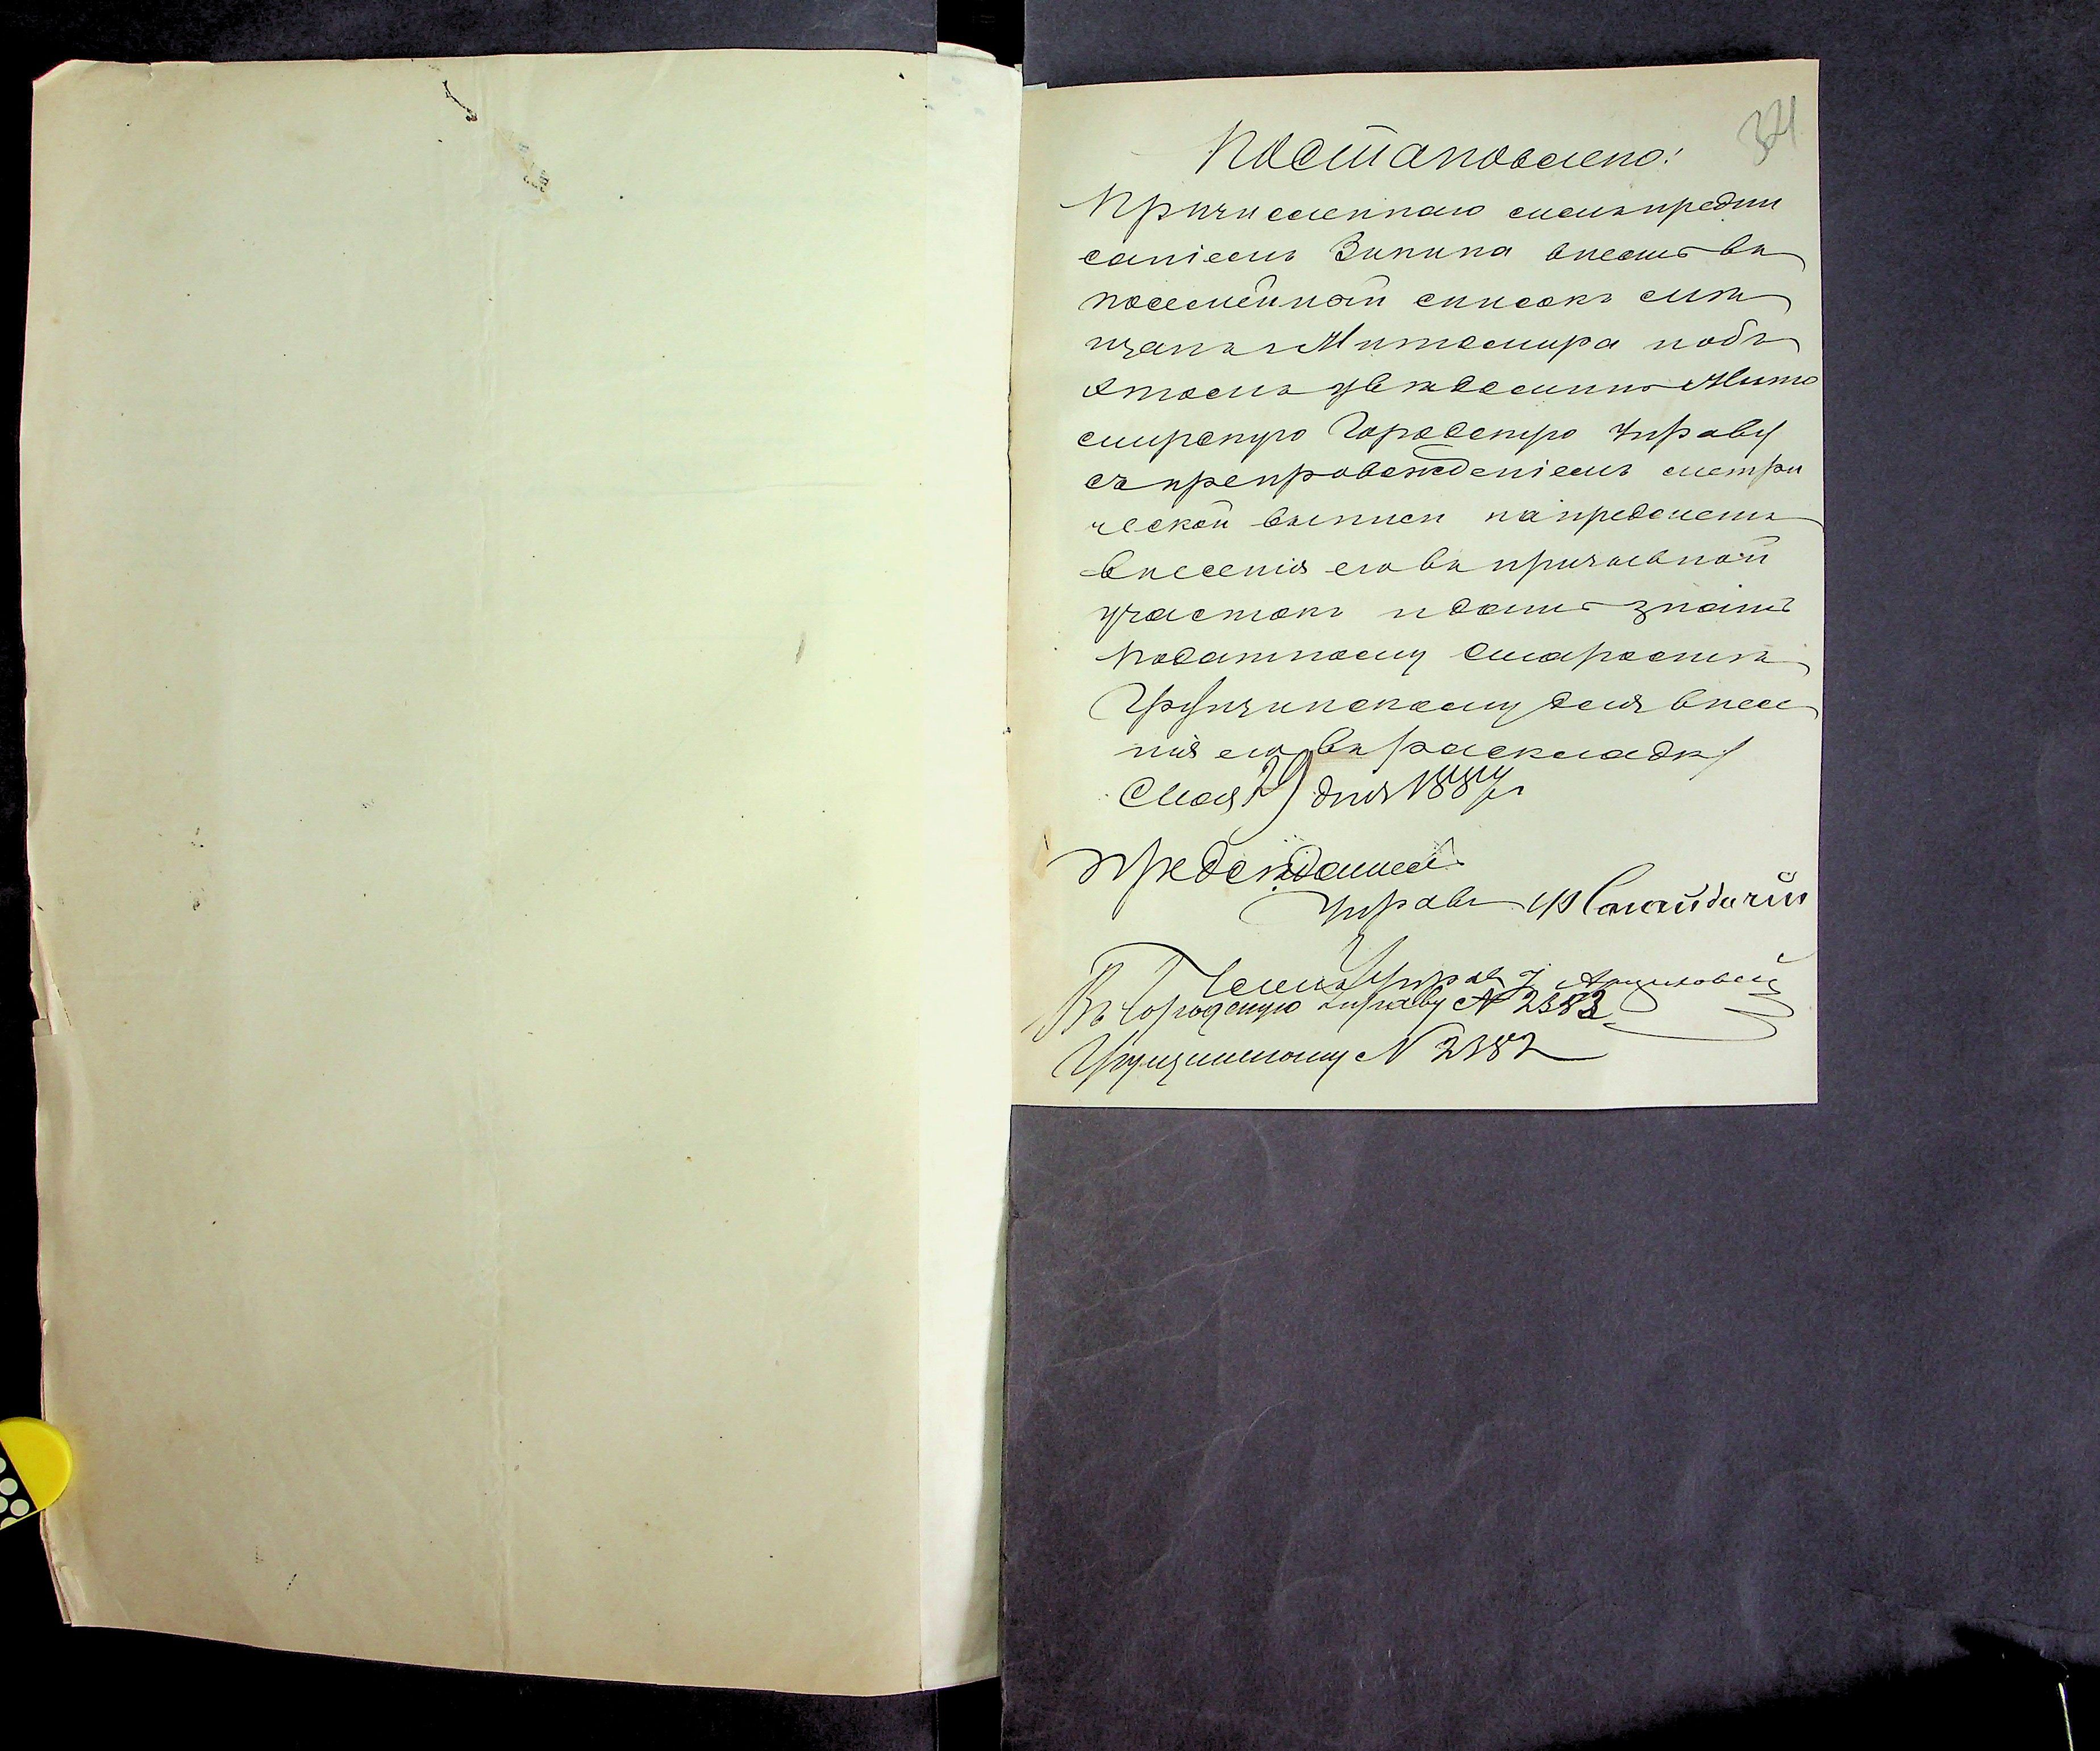 321
Постановлено:
Причисленнаго симъ предпи
саніемъ Зинина внесть въ
посемейный списокъ мѣ
щанъ г Житомира и объ
этомъ увѣдомить Жито
мирскую Городскую Управу
съ препровожденіемъ метри
ческой выписи на предметъ
внесенія его въ призывной
участокъ и дать знать
Податному Старостѣ
Грузинскому для внесе
нія его въ раскладку
Мая 29 дня 1884 г
Предсѣдатель
Управы
Членъ Управы
Въ Городскую Управу № 2383
Грузинскому № 2382